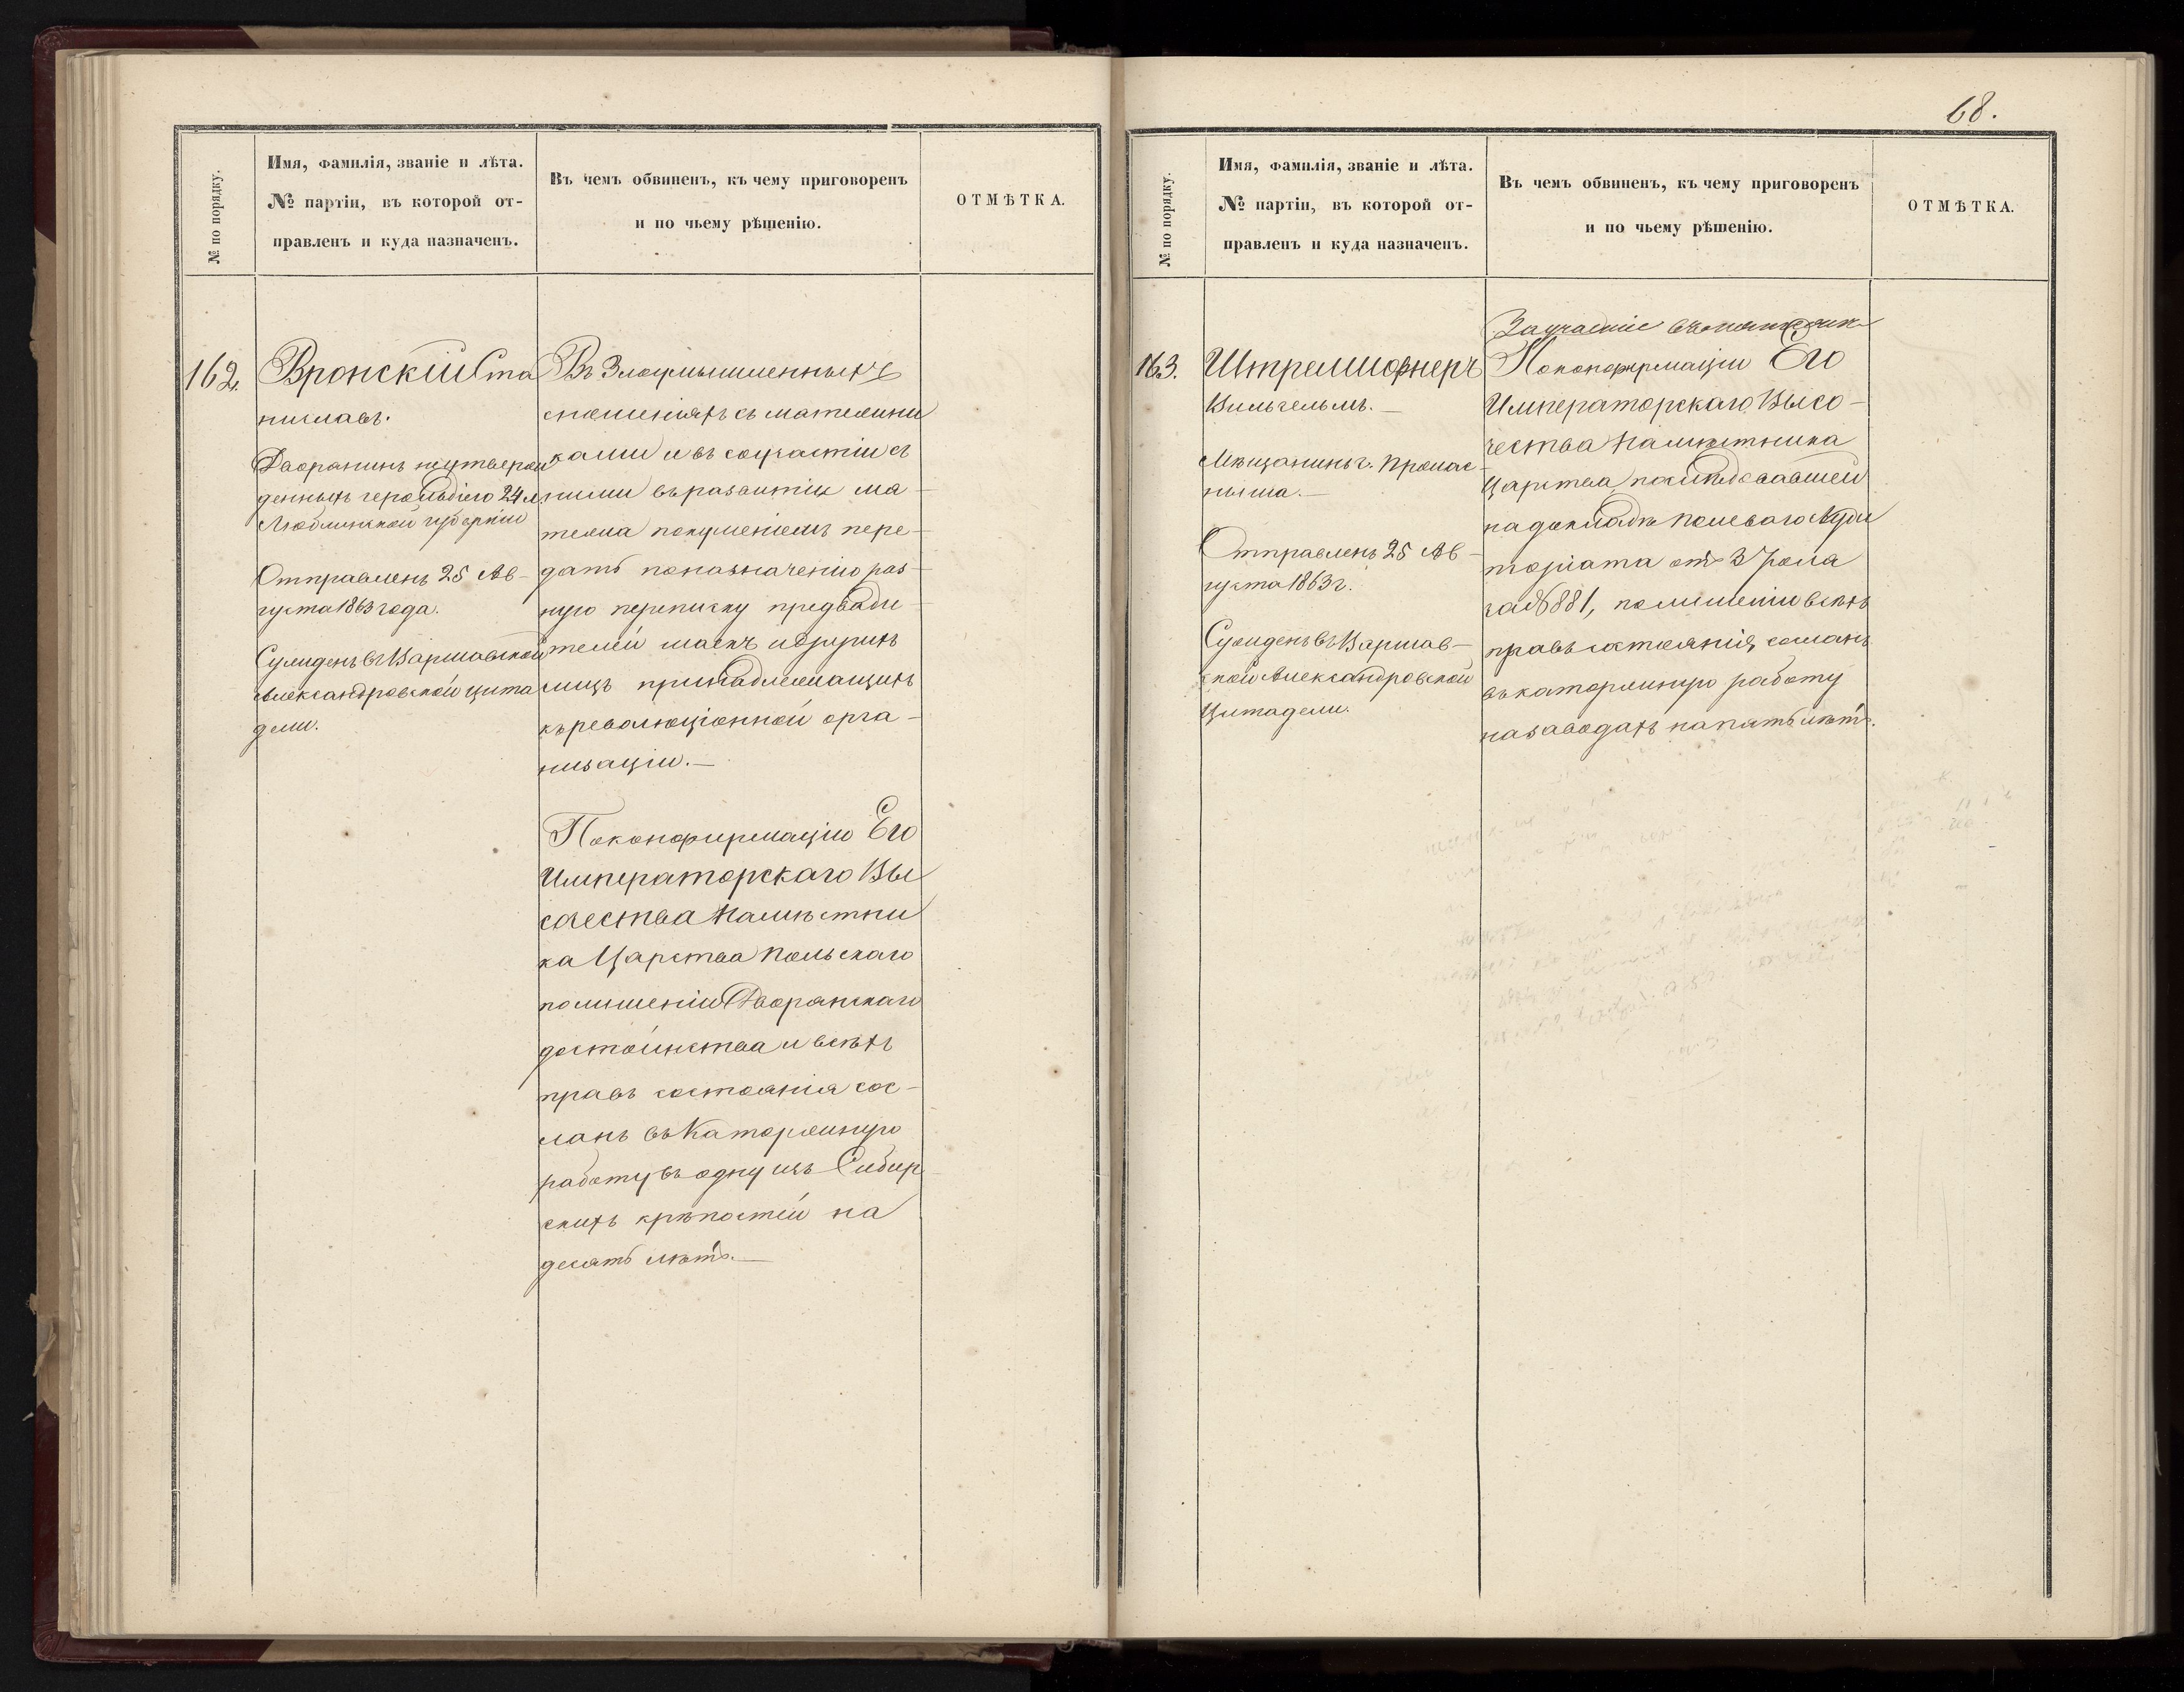 № по порядку.
Имя, фамилія, званіе и лѣта.
№ партіи, въ которой от-
правленъ и куда назначенъ.
Въ чемъ обвиненъ, къ чему приговоренъ
и по чьему рѣшенію.
ОТМѢТКА.
162.
Вронскій Ста
ниславъ.
Дворянинъ неутверж
денныхъ герольдіею 24 л.
Люблинской губерніи
Отправленъ 25 Ав-
густа 1863 года.
Сужденъ въ Варшавской
Александровской цита
дели.
Въ Злоумышленныхъ
сношеніяхъ съ мятежни
ками и въ соучастіи съ
ними въ развитіи мя-
тежа покушеніемъ пере-
дать по назначенію раз-
ную переписку предводи-
телей шаекъ и другихъ
лицъ принадлежащихъ
къ революціонной орга-
низаціи.—
По конфирмаціи Его
Императорскаго Вы
сочества Намѣстни
ка Царства Польскаго
по лишеніи Дворянскаго
достоинства и всѣхъ
правъ состоянія сос-
ланъ въ Каторжную
работу въ одну изъ Сибир
скихъ крѣпостей на
десять лѣтъ.—
68.
№ по порядку.
Имя, фамилія, званіе и лѣта.
№ партіи, въ которой от-
правленъ и куда назначенъ.
Въ чемъ обвиненъ, къ чему приговоренъ
и по чьему рѣшенію.
ОТМѢТКА.
163.
Вильгельмъ.—
Мѣщанинъ г. Прас-
ныша.—
Отправленъ 25 Ав-
густа 1863 г.
Сужденъ въ Варшав-
ской Александровской
Цитадели.
За участіе въ мятежѣ
По конфирмаціи Его
Императорскаго Высо-
чества Намѣстника
Царства послѣдовавшей
на докладѣ Полеваго Ауди
торіата отъ 3 Іюля
за № 881, по лишеніи всѣхъ
правъ состоянія, сосланъ
въ каторжную работу
на заводахъ на пять лѣтъ.